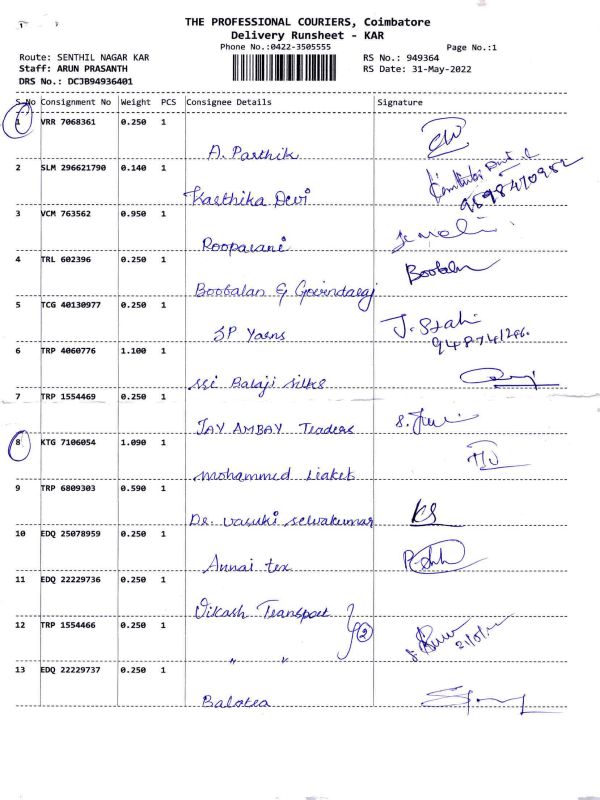 THE PROFESSIONAL COURIERS, Coimbatore
Delivery Runsheet - KAR
Phone No.:0422-3505555
Page No.:1
Route: SENTHIL NAGAR KAR
RS No.: 949364
Staff: ARUN PRASANTH
RS Date: 31-May-2022
DRS No.: DCJB94936401
S No Consignment No Weight PCS Consignee Details Signature
1 VRR 7068361 0.250 1
A. Parthik
2 SLM 296621790 0.140 1
Karthika Devi
9598470952
3 VCM 763562 0.950 1
Rooparani
4 TRL 602396 0.250 1
Boobalan
Boobalan & Govindaraj
5 TCG 40130977 0.250 1
SP Yarns
6 TRP 4060776 1.100 1
sri Balaji silks
7 TRP 1554469 0.250 1
JAY AMBAY Traders
8 KTG 7106054 1.090 1
mohammed liaket
9 TRP 6809303 0.590 1
KS
Dr. vasuki selvakumar
10 EDQ 25078959 0.250 1
Annai tex
11 EDQ 22229736 0.250 1
Vikash Transport
12 TRP 1554466 0.250 1
2
" "
13 EDQ 22229737 0.250 1
Balotra